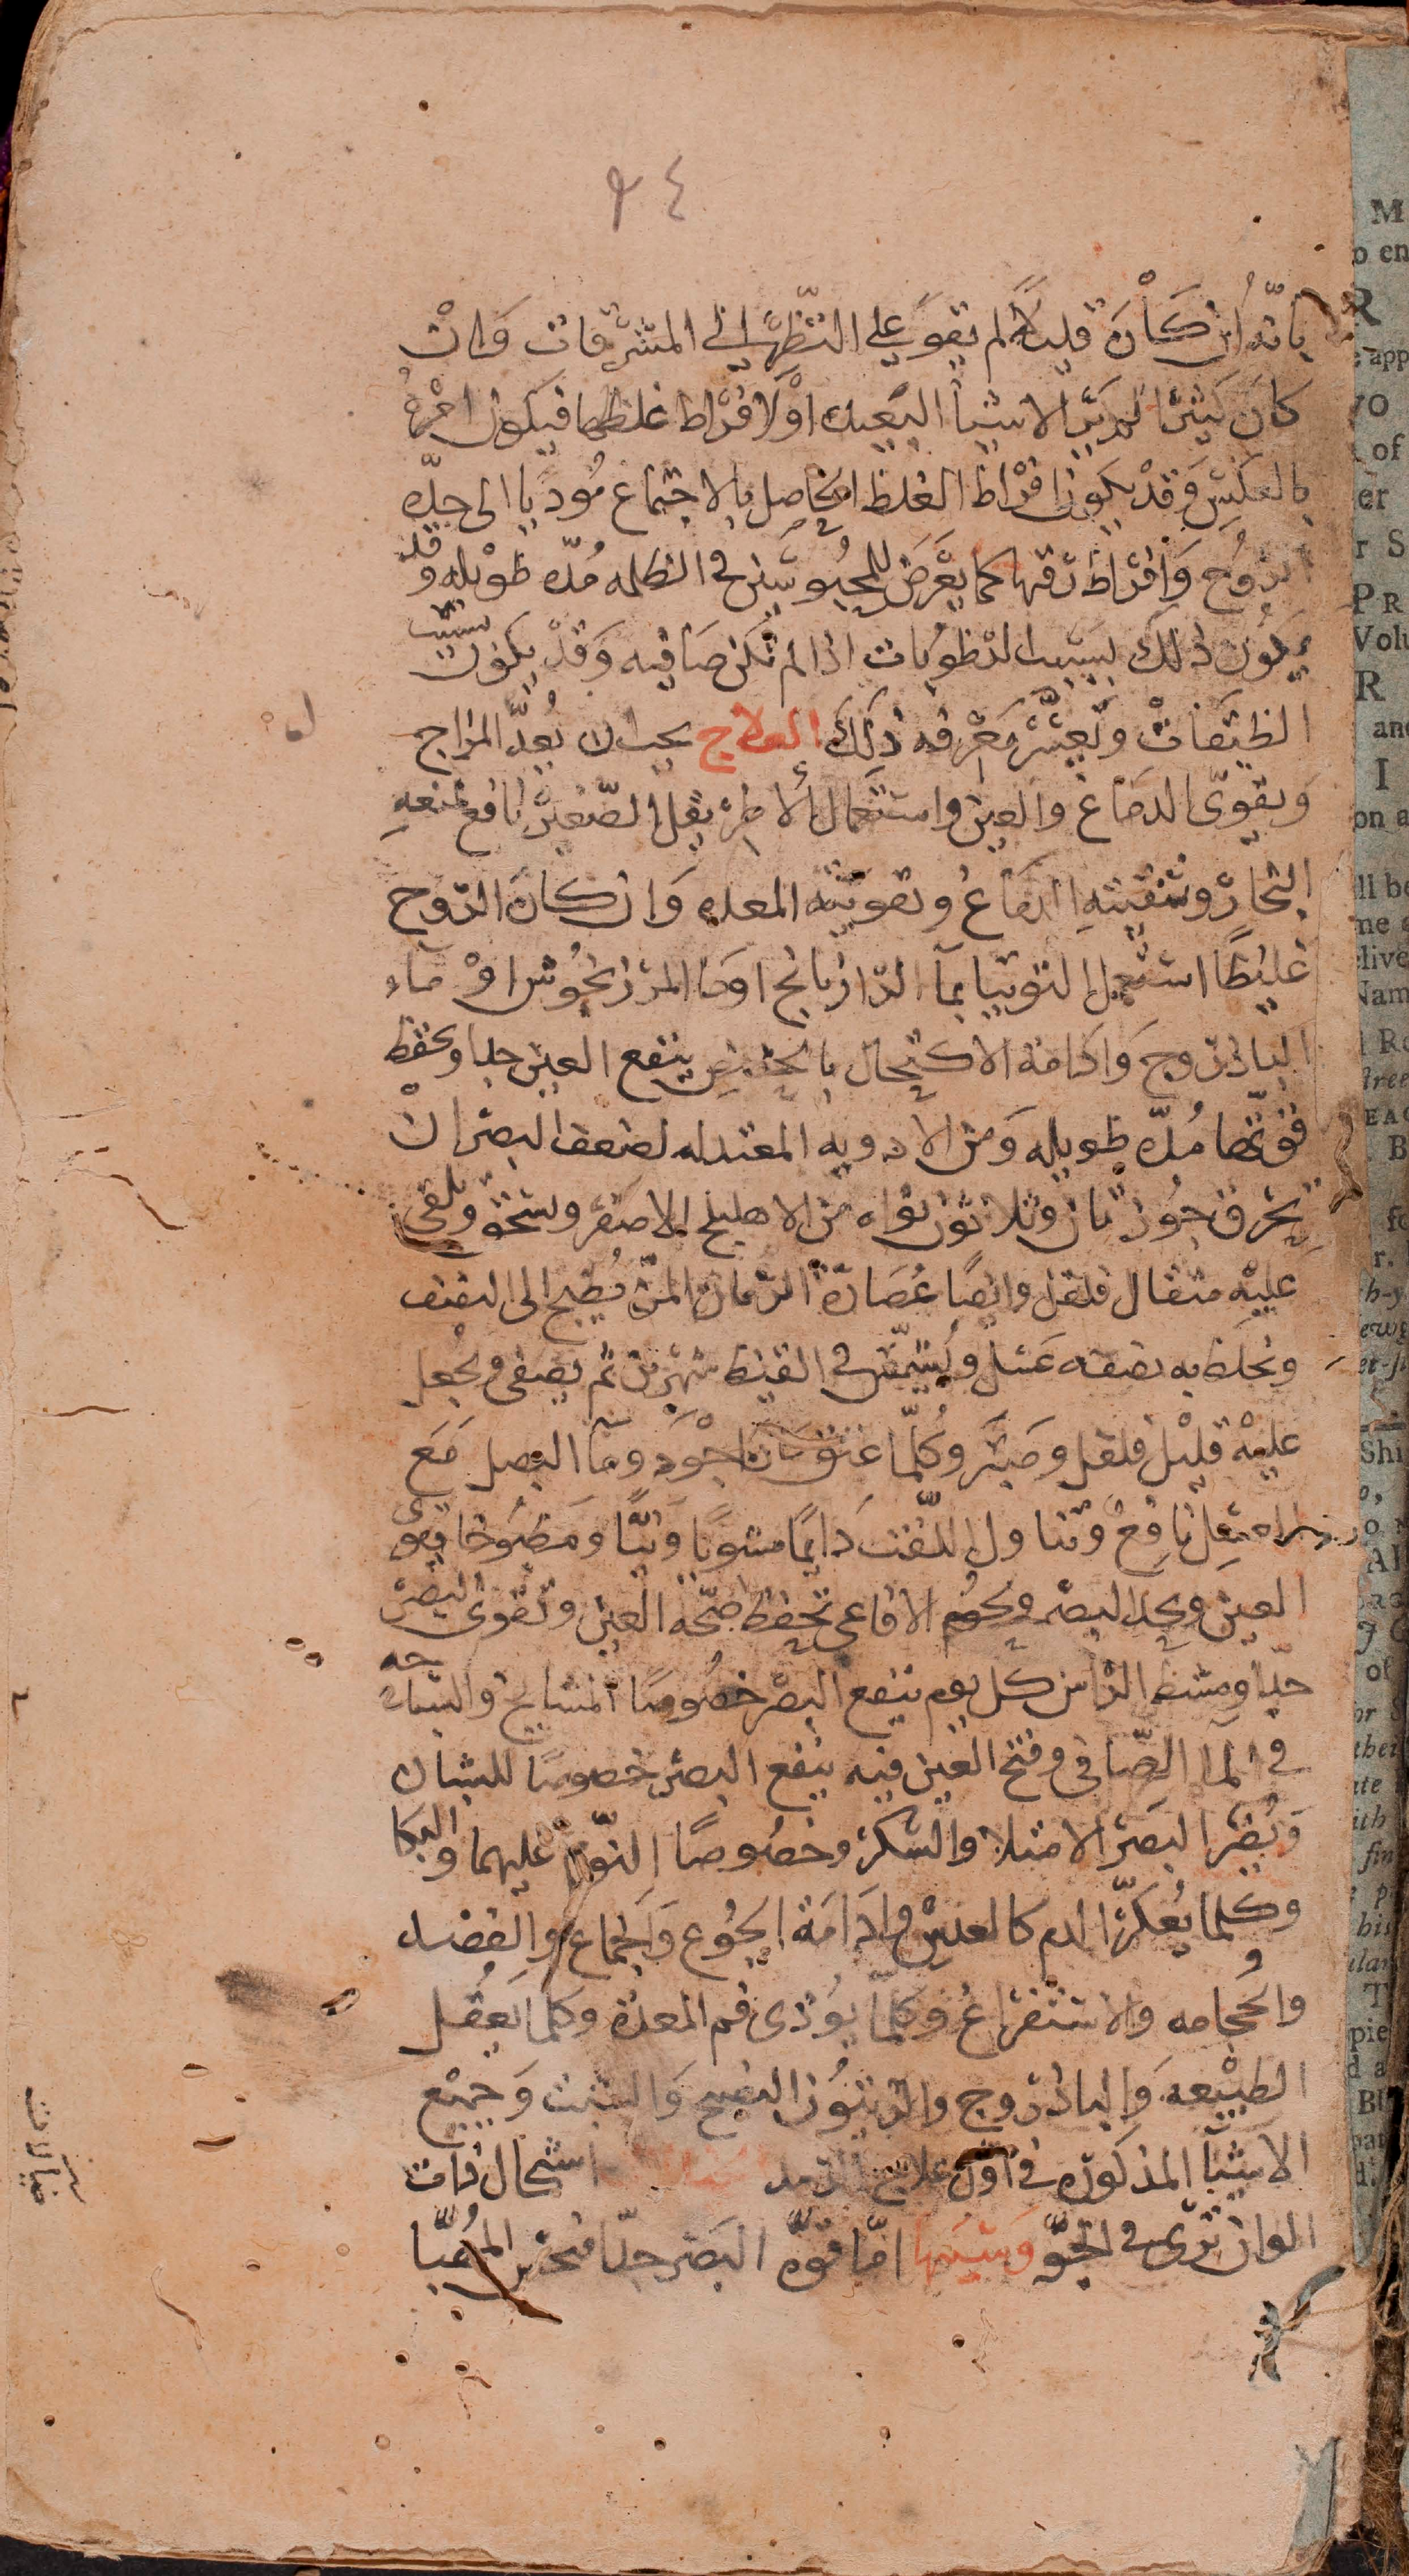 ٩٤
بانه ان كان قليلا لم يقو على النظر الى المشرقات وان
كان كثيرا لم ير الاشيا البعيده او لافراط غلظها فيكون امره
بالعكس وقد يكون افراط الغلظ الحاصل بالاجتماع مؤديا الى حده
الروح وافراط رقتها كما يعرض للمحبوسين في الظلمه مده طويله وقد
يكون ذلك بسبب الرطوبات اذا لم تكن صافيه وقد يكون بسبب
الطبقات ويعسر معرفه ذلك العلاج يجب ان يعدل المزاج
ويقوى الدماغ والعين واستعمال الاطريفل الصغير نافع لمنعه
البخار وتنقيته الدماغ وتقويته المعده وان كان الروح
غليظا استعمل التوتيا بما الرازيانج او ما المرزنجوش او ماء
الباذروج وادامة الاكتحال بالحضض ينفع العين جدا ويحفظ
قوتها مده طويله ومن الادويه المعتدله لضعف البصر ان
يحرق جوزتان وثلاثون نواه من الاهليلج الاصفر ويسحق ويلقى
عليه مثقال فلفل وايضا عصارة الرمان المز يطبخ الى النصف
ويخلط به نصفه عسل ويشمس في القيظ شهرين ثم يصفى ويجعل
عليه قليل فلفل وصبر وكلما عتق كان اجود وما البصل مع
العسل نافع وتناول اللفت دايما مشويا ونيا ومطبوخا يقوى
العين ويحد البصر ولحوم الافاعي تحفظ صحه العين وتقوى البصر
جدا ومشط الراس كل يوم ينفع البصر خصوصا المشايخ والسباحه
في الما الصافي وفتح العين فيه ينفع البصر خصوصا للشبان
ويضر البصر الامتلا والسكر وخصوصا النوم عليهما والبكا
وكلما يعكر الدم كالعدس وادامة الجوع والجماع والفصد
والحجامه والاستفراغ وكلما يوذى فم المعدة وكلما يعقل
الطبيعه والباذروج والزيتون النضيج والشبث وجميع
الاشيا المذكوره في اول علاج الرمد اشكال ذات
الوان ترى في الجو وسببها اما قوة البصر جدا فيحس الهبا
خيالات